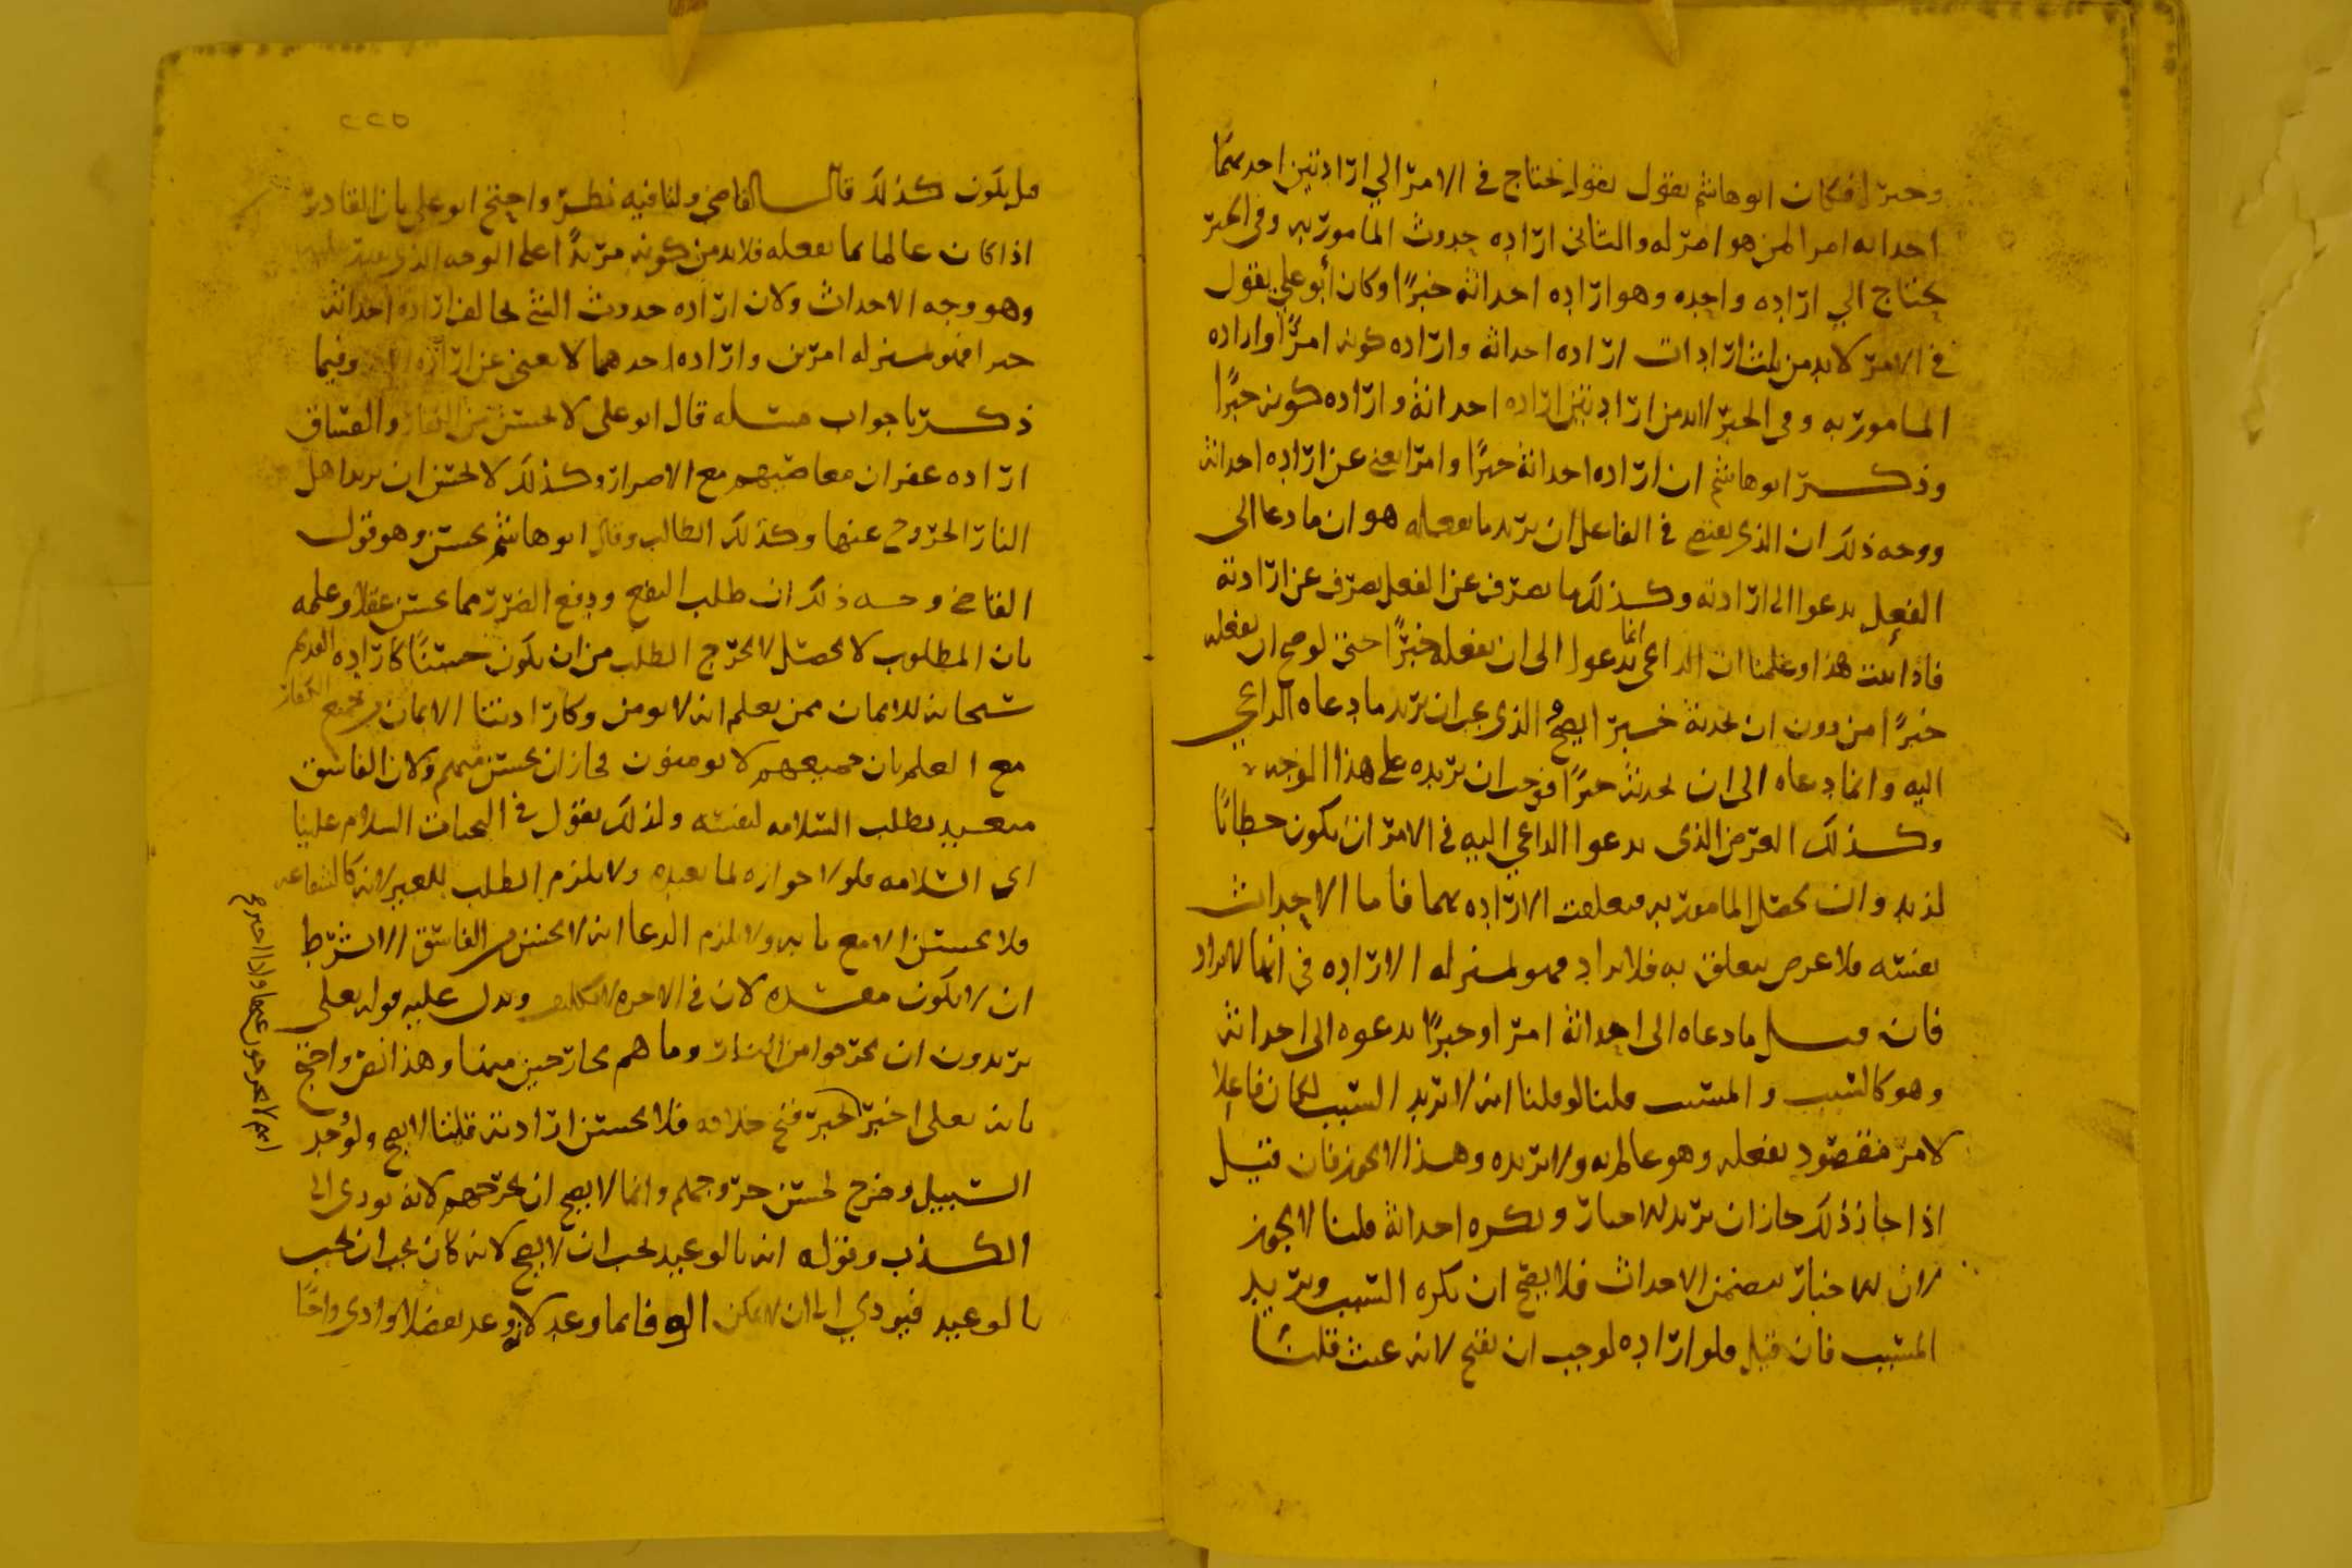 وخبرًا فكان ابو هاشم يقول يقول يحتاج في الامر الي ارادتين احدهما
احداثه امرا لمن هو امر له والثاني ارادة حدوث المامور به وفي الخبر
يحتاج الي ارادة واحده وهو ارادة احداثه خبرًا وكان أبو علي يقول
في الامر لا بد من ثلث ارادات ارادة احداثه وارادة كونه امرًا وارادة
المامور به وفي الخبر لابد من ارادتين ارادة احداثه وارادة كونه خبرًا
وذكر ابو هاشم ان ارادة احداثه خبرًا وامرًا يغني عن ارادة احداثه
ووجه ذلك ان الذي يقتضي في الفاعل ان يريد ما يفعله هو ان ما دعا الى
الفعل يدعوا الى ارادته وكذلك ما يصرف عن الفعل يصرف عن ارادته
فاذا ثبت هذا وعلمنا ان الداعي انما يدعوا الى ان يفعله خبرًا حتى لو صح ان يفعله
خبرًا من دون ان يحدثه خبرًا يصح الذي يجب ان يريد ما دعاه الداعي
اليه وانما دعاه الى ان يحدثه خبرًا فوجب ان يريده على هذا الوجه
وكذلك الغرض الذي يدعوا الداعي اليه في الامر ان يكون خطابًا
لزيد وان يحصل المامور به فتعلقت الارادة بهما فاما الاحداث
بعينه فلا غرض يتعلق به فلا يراد فهو بمنزلة الارادة في انها لا تراد
فان قيل ما دعاه الى احداثه امرًا وخبرًا يدعوه الى احداثه
وهو كالسبب والمسبب قلنا لو قلنا انه لا يريد السبب لكان فاعلا
لامر مقصود بفعله وهو عالم به ولا يريده وهذا لا يجوز فان قيل
اذا جاز ذلك جاز ان يريد الاخبار ويكره احداثه قلنا لا يجوز
لان الاخبار يتضمن الاحداث فلا يصح ان يكره السبب ويريد
المسبب فان قيل فلو اراده لوجب ان يقبح لانه عبث قلنا
٢٢٥
هل يكون كذلك قال القاضي ولنا فيه نظر واحتج ابو علي بان القادر
اذا كان عالما بما يفعله فلا بد من كونه مريدًا على الوجه الذي
وهو وجه الاحداث ولان ارادة حدوث الشئ تخالف ارادة احداثه
خبرا فهو بمنزلة امرين وارادة احدهما لا يغني عن ارادة وفيما
ذكرنا جواب مسله قال ابو علي لا يحسن من الكفار والفساق
ارادة غفران معاصيهم مع الاصرار وكذلك لا يحسن ان يريد اهل
النار الخروج عنها وكذلك الطالب وقال ابو هاشم يحسن وهو قول
القاضي وجه ذلك ان طلب النفع ودفع الضرر مما يحسن عقلا وعلمه
بان المطلوب لا يحصل لا يخرج الطلب من ان يكون حسنًا كارادة القديم
سبحانه للايمان ممن يعلم انه لا يومن وكارادتنا الايمان من جميع الكفار
مع العلم بان جميعهم لا يومنون فجاز ان يحسن منهم ولان الفاسق
متعبد بطلب السلامه لنفسه ولذلك يقول في التحيات السلام علينا
اي السلامه فلولا جوازه لما تعبد ولا يلزم الطلب للغير لانه كالشفاعه
فلا يحسن الا مع ولا يلزم الدعا انه لا يحسن من الفاسق الا بشرط
ان لا يكون مفسده لان في الاخره لا تكليف ويدل عليه قوله تعلى
يريدون ان يخرجوا من النار وما هم بخارجين منها وهذا نص واحتج
بانه تعلى اخبر الخبر قبح خلافه فلا يحسن ارادته قلنا لا يقبح ولو وجد
السبيل وخرج لحسن خروجهم وانما لا يصح ان يخرجهم لانه يودي الى
الكذب وقوله انه بالوعيد يجب ان لا يصح لانه كان يجب ان يجب
بالوعيد فيودي الى ان لا يمكن الوفا بما وعد لانه وعد تفضلا وادى واجبًا
انهم لا يخرجون عنها واذا اخبر